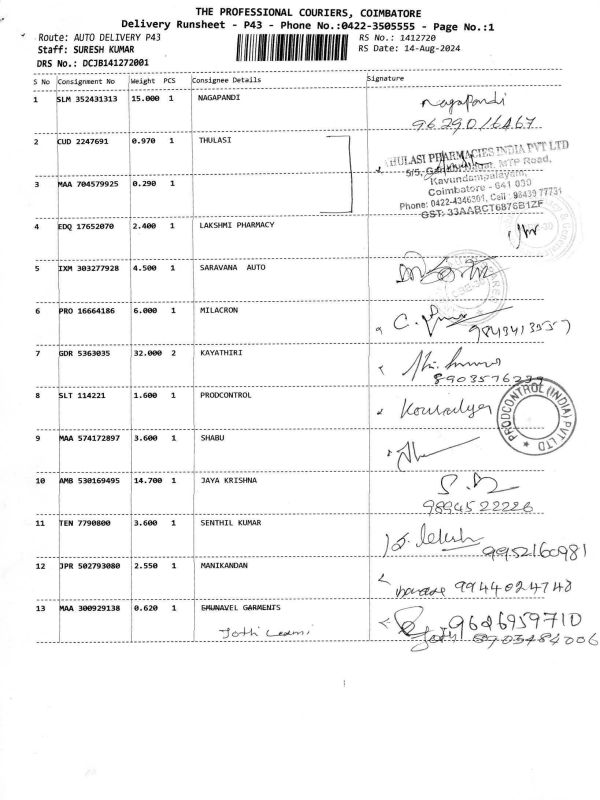 THE PROFESSIONAL COURIERS, COIMBATORE
Delivery Runsheet - P43 - Phone No.:0422-3505555 - Page No.:1
Route: AUTO DELIVERY P43 RS No.: 1412720
Staff: SURESH KUMAR RS Date: 14-Aug-2024
DRS No.: DCJB141272001
S No Consignment No Weight PCS Consignee Details Signature
1 SLM 352431313 15.000 1 NAGAPANDI nagapandi
9629016467
2 CUD 2247691 0.970 1 THULASI
THULASI PHARMACIES INDIA PVT LTD
MTP Road,
Kavundampalayam,
3 MAA 704579925 0.290 1 Coimbatore - 641 030
Phone: 0422-4346301, Cell : 98439 77731
GST: 33AABCT6876B1ZF
4 EDQ 17652070 2.400 1 LAKSHMI PHARMACY
5 IXM 303277928 4.500 1 SARAVANA AUTO
6 PRO 16664186 6.000 1 MILACRON
7 GDR 5363035 32.000 2 KAYATHIRI
8 SLT 114221 1.600 1 PRODCONTROL
PRODCONTROL (INDIA) PVT LTD
9 MAA 574172897 3.600 1 SHABU
10 AMB 530169495 14.700 1 JAYA KRISHNA
9894522226
11 TEN 7790800 3.600 1 SENTHIL KUMAR
9952160981
12 JPR 502793080 2.550 1 MANIKANDAN
9944024740
13 MAA 300929138 0.620 1 EMUNAVEL GARMENTS 9626959710
Jothi Laxmi 8903484006